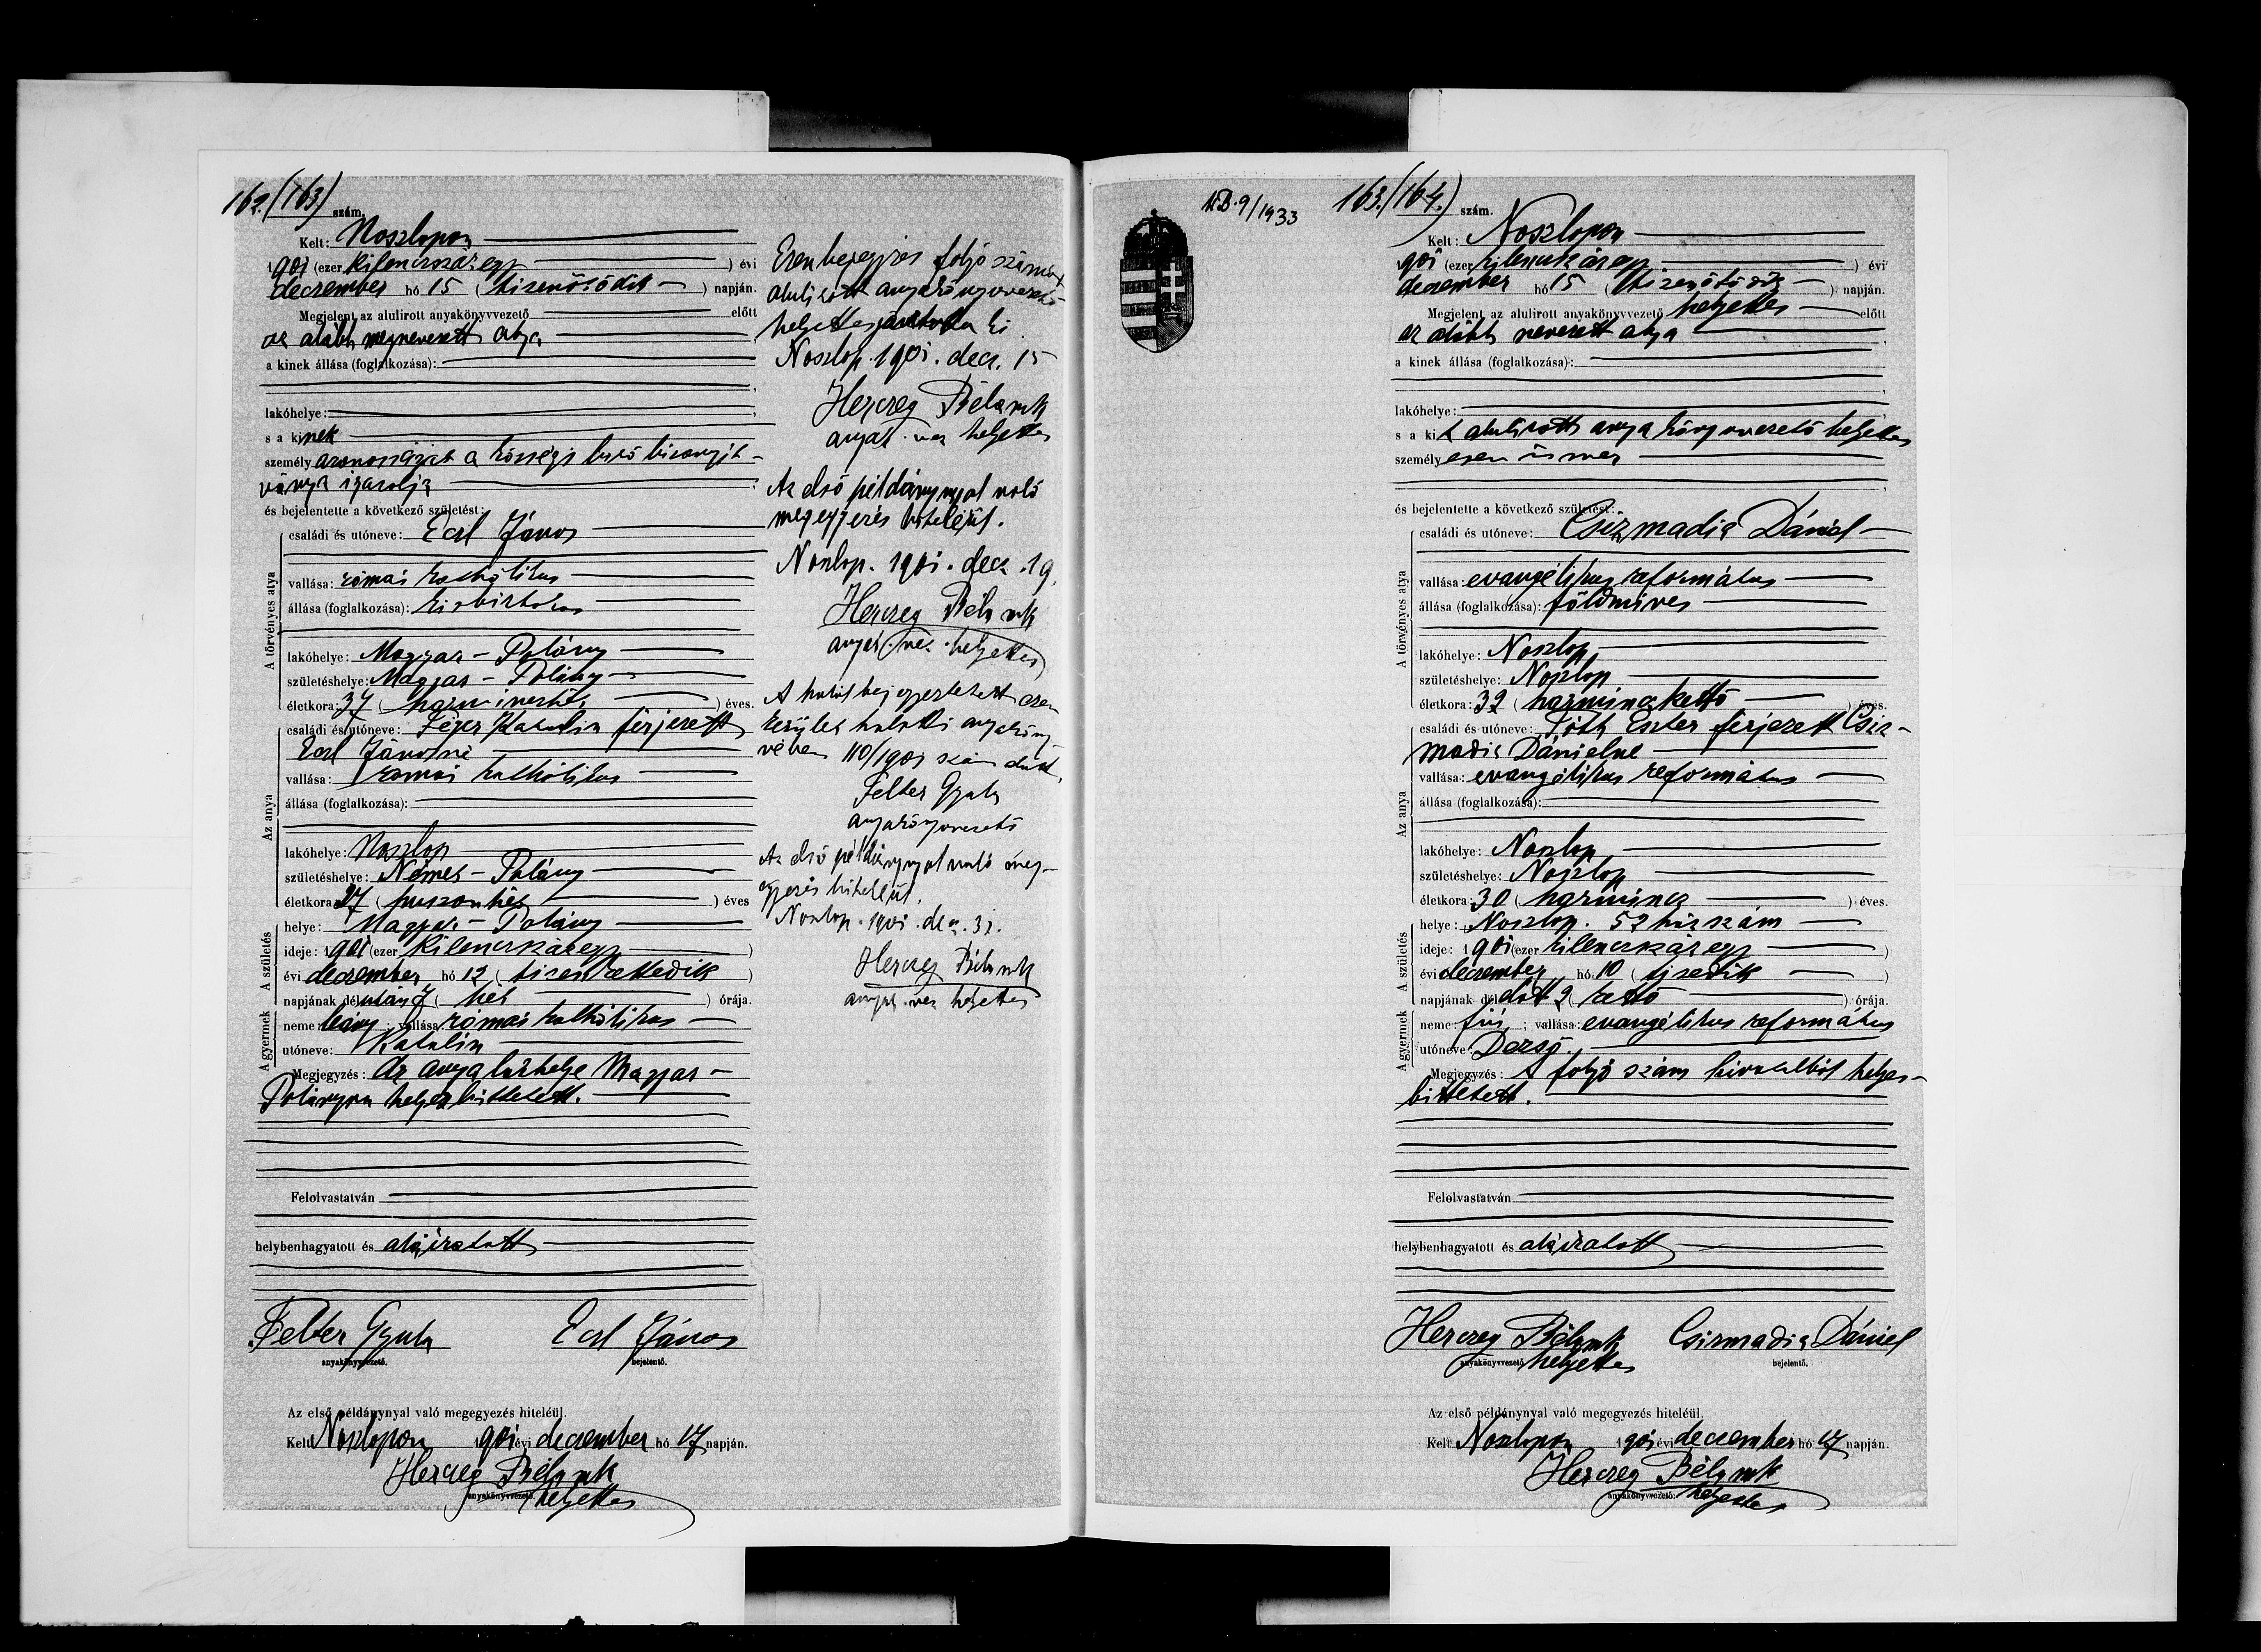 162. (163.) szám.
Kelt: Noszlopon
1901 (ezer kilenczszáz egy ) évi
deczember hó 15 ( tizenötödik ) napján.
Megjelent az alulirott anyakönyvvezető előtt
az alább megnevezett atya
a kinek állása (foglalkozása):
lakóhelye:
s a kinek
személyazonosságát a községi biró bizonyít-
ványa igazolja
és bejelentette a következő születést:
A törvényes atya
családi és utóneve: Ecsl János
vallása: római katholikus
állása (foglalkozása): kisbirtokos
lakóhelye: Magyar-Polány
születéshelye: Magyar-Polány
életkora: 37 ( harminczhét ) éves.
Az anya
családi és utóneve: Fejes Katalin férjezett
Ecsl Jánosné
vallása: római katholikus
állása (foglalkozása):
lakóhelye: Noszlop
születéshelye: Német-Polány
életkora: 27 ( huszonhét ) éves
A születés
helye: Magyar-Polány
ideje: 1901 (ezer kilenczszáz egy )
évi deczember hó 12 ( tizenkettedik )
napjának délután 7 ( hét ) órája.
A gyermek
neme: leány ; vallása: római katholikus
utóneve: Katalin
Megjegyzés: Az anya lakhelye Magyar-
Polányra helyesbittetett.
Felolvastatván
helybenhagyatott és aláiratott
Felber Gyula Ecsl János
anyakönyvvezető. bejelentő.
Az első példánynyal való megegyezés hiteléül.
Kelt Noszlopon 1901 évi deczember hó 17 napján.
Herczeg Béla mk
anyakönyvvezető. helyettes
Ezen bejegyzés folyó számát
alulirott anyakönyvvezető-
helyettes javitotta ki
Noszlop. 1901. decz. 15
Herczeg Béla mk
anyak. vez. helyettes
Az első példánynyal való
megegyezés hiteléül.
Noszlop. 1901. decz. 19.
Herczeg Béla mk
anyak. vez. helyettes
A halál bejegyeztetett ezen
kerület halotti anyaköny-
vében 110/1901 szám alatt.
Felber Gyula
anyakönyvvezető
Az első példánynyal való meg-
egyezés hiteléül.
Noszlop. 1901. decz. 31.
Herczeg Béla mk
anyak. vez. helyettes
9/1933
163. (164.) szám.
Kelt: Noszlopon
1901 (ezer kilenczszáz egy ) évi
deczember hó 15 ( tizenötödik ) napján.
Megjelent az alulirott anyakönyvvezető helyettes előtt
az alább nevezett atya
a kinek állása (foglalkozása):
lakóhelye:
s a kit alulirott anyakönyvvezető helyettes
személyesen ismer
és bejelentette a következő születést:
A törvényes atya
családi és utóneve: Csizmadia Dániel
vallása: evangélikus református
állása (foglalkozása): földmives
lakóhelye: Noszlop
születéshelye: Noszlop
életkora: 32 ( harminczkettő ) éves.
Az anya
családi és utóneve: Tóth Eszter férjezett Csiz-
madia Dánielné
vallása: evangélikus református
állása (foglalkozása):
lakóhelye: Noszlop
születéshelye: Noszlop
életkora: 30 ( harmincz ) éves.
A születés
helye: Noszlop. 52 házszám
ideje: 1901 (ezer kilenczszáz egy )
évi deczember hó 10 ( tizedik )
napjának délelőtt 2 ( kettő ) órája.
A gyermek
neme: fiú ; vallása: evangélikus református
utóneve: Dezső.
Megjegyzés: A folyó szám hivatalból helyes-
bittetett.
Felolvastatván
helybenhagyatott és aláiratott
Herczeg Béla mk Csizmadia Dániel
anyakönyvvezető helyettes bejelentő.
Az első példánynyal való megegyezés hiteléül.
Kelt Noszlopon 1901 évi deczember hó 17 napján.
Herczeg Béla mk
anyakönyvvezető: helyettes